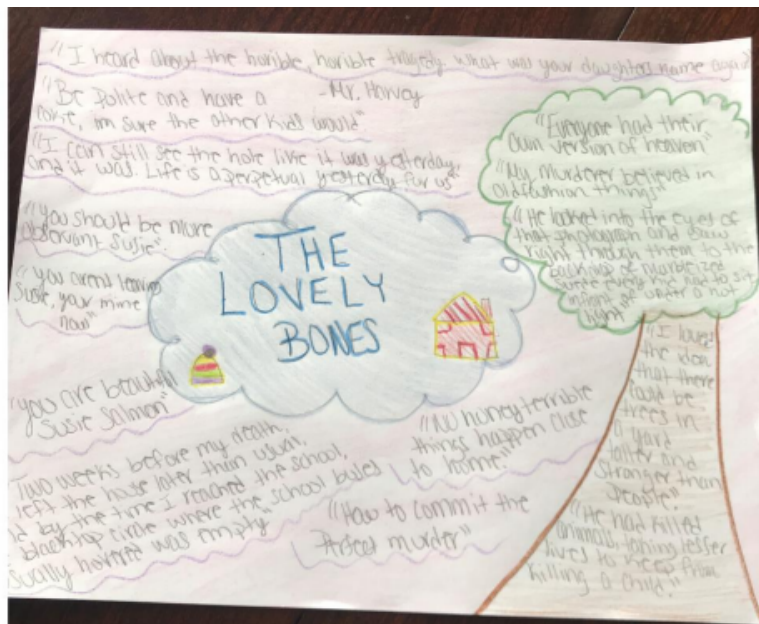 "I heard about the horrible, horrible tragedy. What was your daughters name again
-Mr. Harvey
"Be Polite and have a
im sure the other kids would"
"I can still see the hole like it was yesterday,
and it was. Life is a perpetual yesterday for us"
"You should be more
observant Susie".
"you arent leaving
Susie, your mine
now"
THE
LOVELY
BONES
"you are beautiful
Susie Salmon"
Two weeks before my death,
left the house later than usual,
by the time I reached the school,
blacktop circle where the school buses
hovered was empty"
"No honey terrible
things happen close
to home."
"How to commit the
Perfect murder"
"Everyone had their
own version of heaven"
"My murderer believed in
old fashion things"
"He looked into the eyes of
that photograph and saw
right through them to the
backdrop of marbleized
where every kid had to sit
under a hot
light
"I loved
the idea
that there
could be
trees in
a yard
taller and
stronger than
people."
"He had killed
animals, taking lesser
lives to keep from
killing a child."